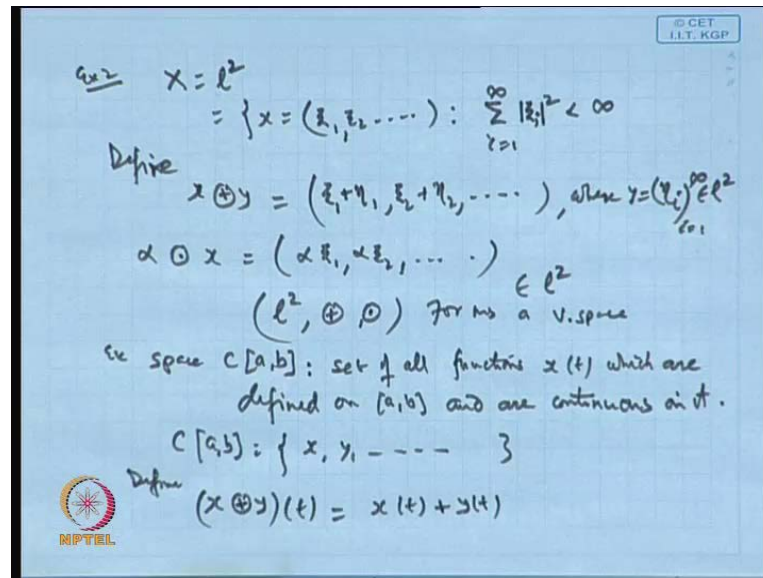 © CET
I.I.T. KGP
Ex 2 X = l²
= { x = (ξ₁, ξ₂ .....) : ∑_{i=1}^{∞} |ξᵢ|² < ∞
Define
x ⊕ y = (ξ₁+η₁, ξ₂+η₂, .....), where y = (ηᵢ)_{i=1}^{∞} ∈ l²
α ⊙ x = (αξ₁, αξ₂, ... .)
∈ l²
(l², ⊕, ⊙) forms a v. space
Ex space C[a,b] : set of all functions x(t) which are
defined on [a,b] and are continuous on it.
C[a,b] : { x, y, - - - - - }
Define
(x ⊕ y)(t) = x(t) + y(t)
NPTEL